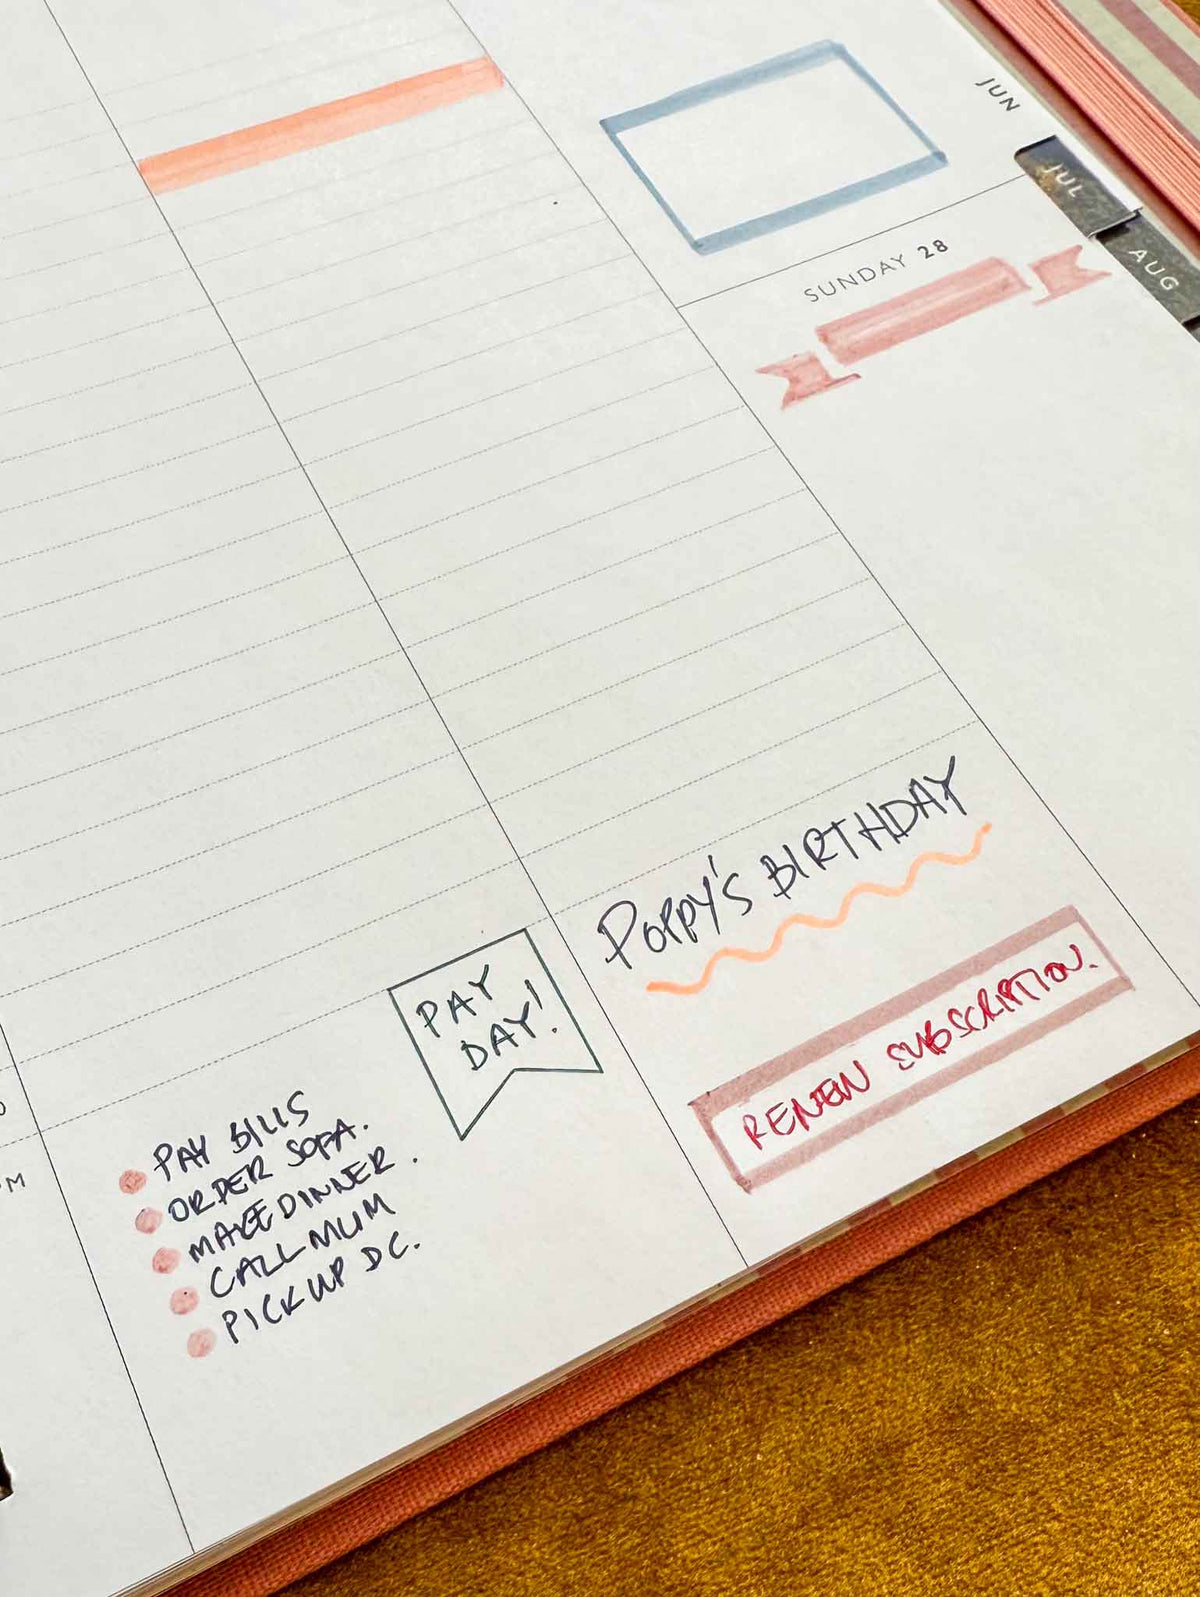 JUN
JUL
AUG
SUNDAY 28
POPPY'S BIRTHDAY
RENEW SUBSCRIPTION.
PAY
DAY!
PAY BILLS
ORDER SOFA.
MAKE DINNER.
CALL MUM
PICK UP DC.